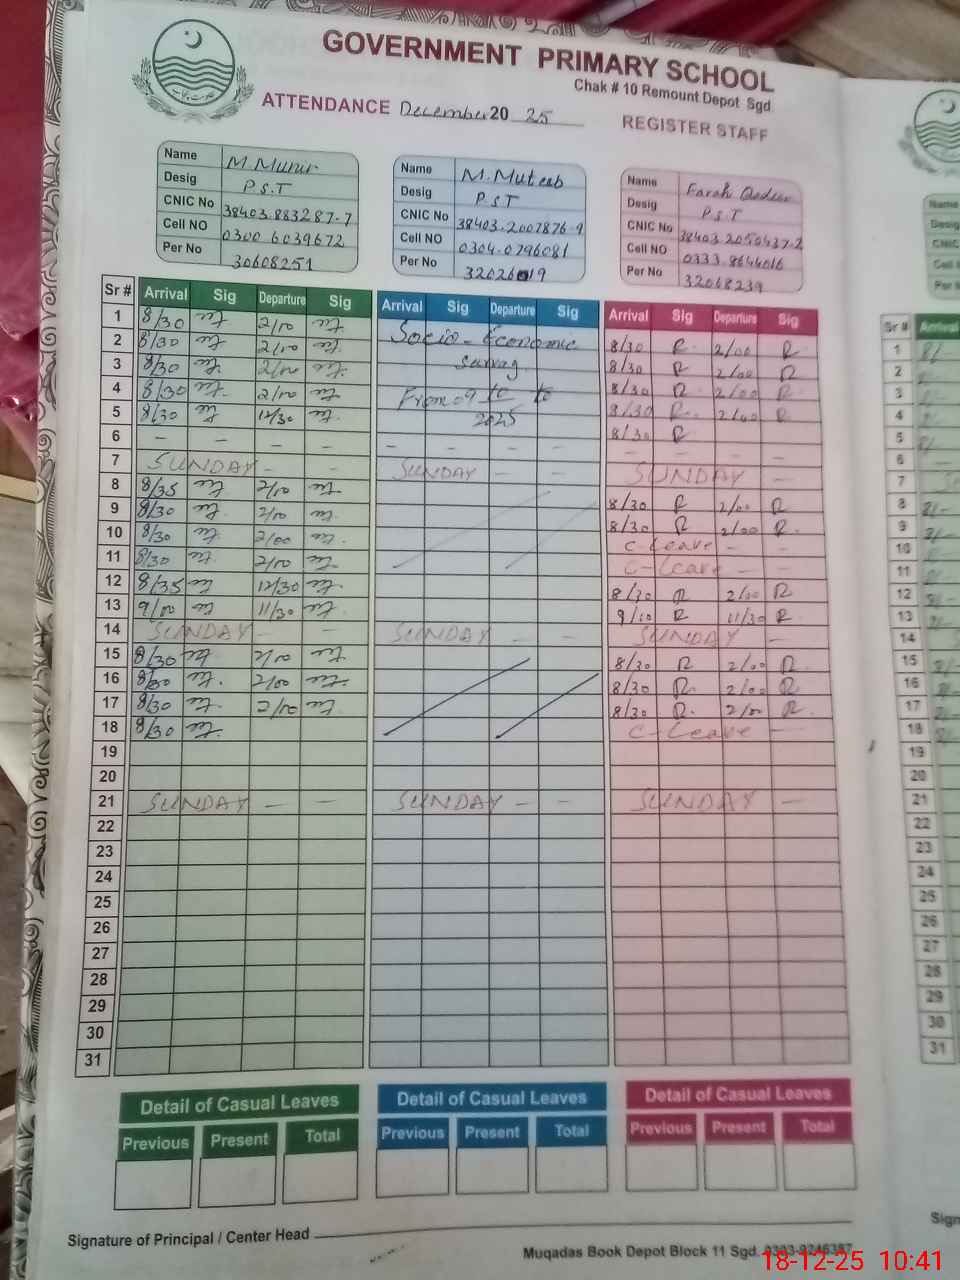 GOVERNMENT PRIMARY SCHOOL
Chak # 10 Remount Depot Sgd
ATTENDANCE December 20 25 REGISTER STAFF
Name M. Munir
Desig P.S.T
CNIC No 38403.883287-7
Cell NO 0300 6039672
Per No 30608251
Name M. Muteeb
Desig P.S.T
CNIC No 38403.2007876-9
Cell NO 0304-0796081
Per No
Name Farah
Desig P.S.T
CNIC No 38403 2050437-2
Cell NO 0333.8644016
Per No 32068239
Sr # Arrival Sig Departure Sig Arrival Sig Departure Sig Arrival Sig Departure Sig
1 8/30 2/00 Socio-Economic 8/30 R 2/00 R
2 8/30 2/00 8/30 R 2/00 R
3 8/30 2/00 8/30 R 2/00 R
4 8/30 2/00 From 09 to to 8/30 R 2/00 R
5 8/30 12/30 2025 8/30 R
6 – – – – – – – – – – –
7 SUNDAY – – SUNDAY – – SUNDAY –
8 8/35 2/00 8/30 R 2/00 R
9 8/30 2/00 8/30 R 2/00 R
10 8/30 2/00 C-Leave – –
11 8/30 2/00 C-Leave – –
12 8/35 12/30 8/30 R 2/00 R
13 9/00 11/30 9/10 R 11/30 R
14 SUNDAY – – SUNDAY – – SUNDAY –
15 8/30 2/00 8/30 R 2/00 R
16 8/30 2/00 8/30 R 2/00 R
17 8/30 2/00 8/30 R 2/00 R
18 8/30 C-Leave –
19
20
21 SUNDAY – – SUNDAY – – SUNDAY –
22
23
24
25
26
27
28
29
30
31
Detail of Casual Leaves Detail of Casual Leaves Detail of Casual Leaves
Previous Present Total Previous Present Total Previous Present Total
Signature of Principal / Center Head
Muqadas Book Depot Block 11 Sgd.
18-12-25 10:41
Name
Desig
CNIC
Cell
Per N
Sr # Arrival
1
2
3
4
5
6
7
8
9
10
11
12
13
14
15
16
17
18
19
20
21
22
23
24
25
26
27
28
29
30
31
Sign